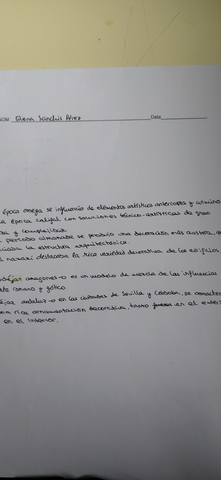 Elena Sanchis Pérez Date
época omeya se influencia de elementos artísticos anteriores y culmino
a época califal con soluciones técnico-artísticas de gran
y complejidad.
periodo almohade se produjo una decoración más austera,
la estructura arquitectónica.
nazarí destacaba la rica variedad decorativa de los edificios
aragonés -o es un modelo de mezcla de las influencias
románo y gótico.
andaluz -o en las ciudades de Sevilla y Córdoba, se
rica ornamentación decorativa, tanto en el
en el interior.